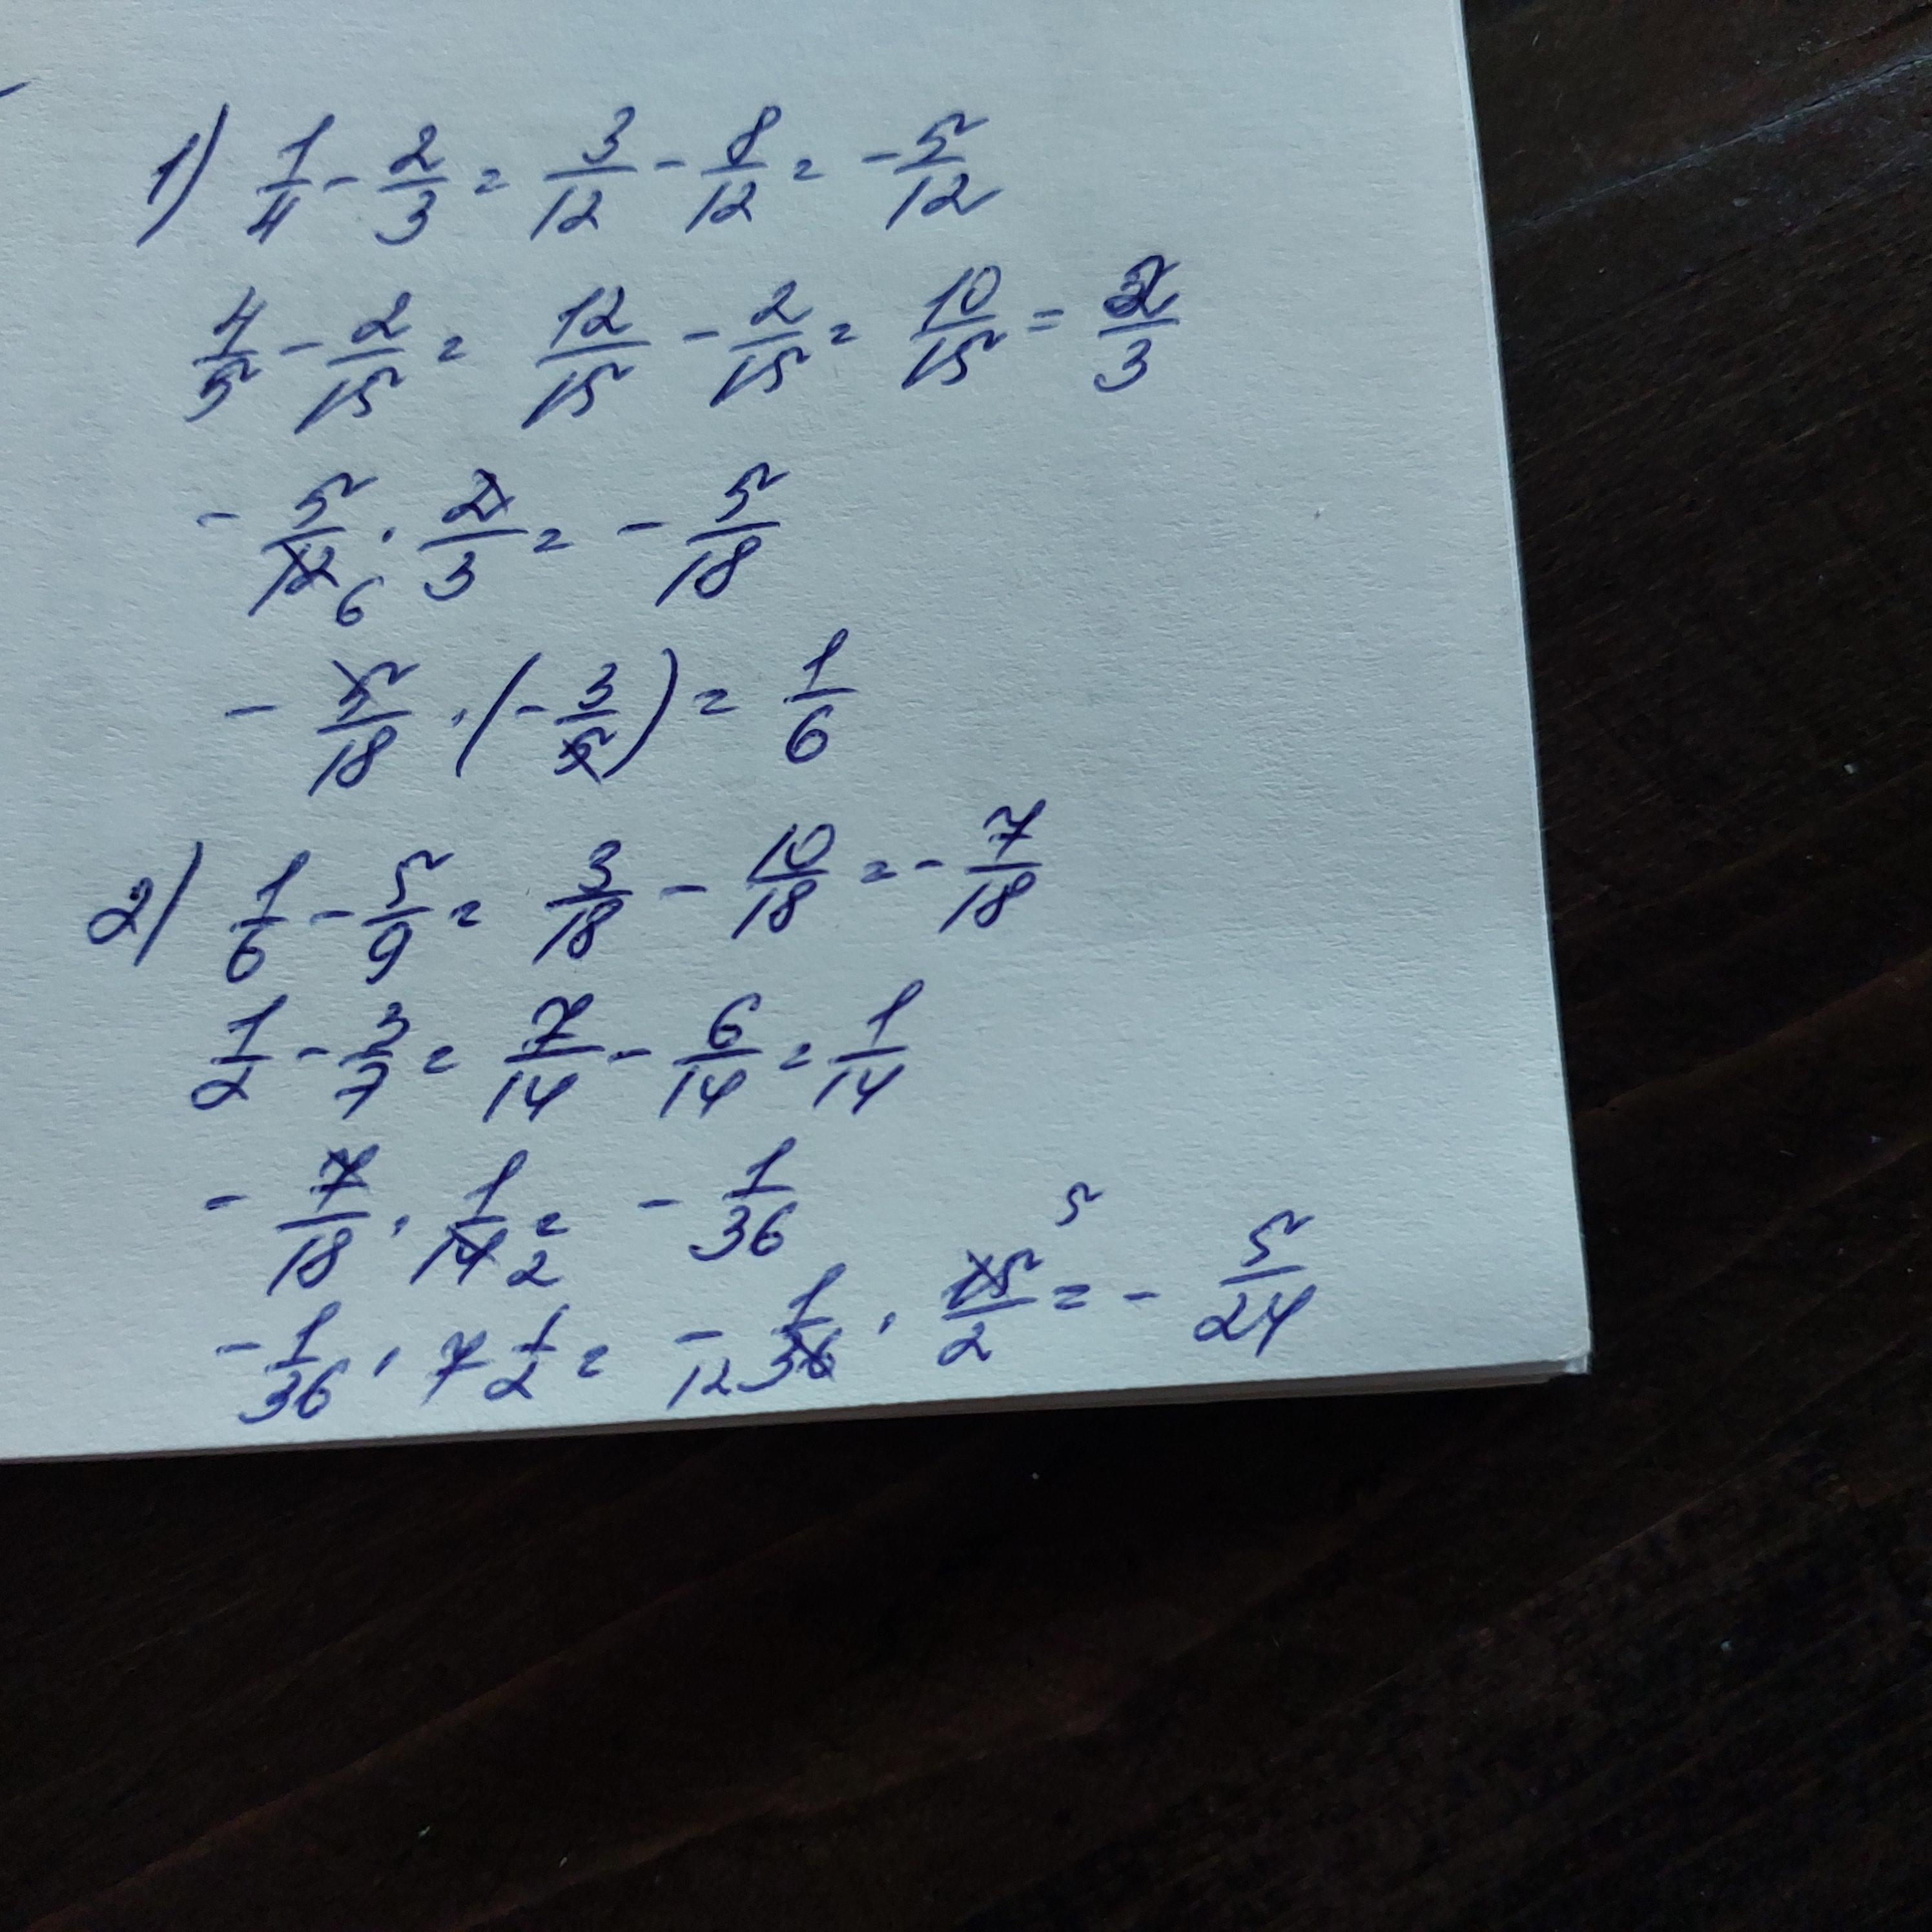 1) 1/4 - 2/3 = 3/12 - 8/12 = -5/12
4/5 - 2/15 = 12/15 - 2/15 = 10/15 = 2/3
- 5/12 6 · 2/3 = - 5/18
- 5/18 · (- 3/5) = 1/6
2) 1/6 - 5/9 = 3/18 - 10/18 = - 7/18
1/2 - 3/7 = 7/14 - 6/14 = 1/14
- 7/18 · 1/14 2 = - 1/36
- 1/36 · 7 1/2 = - 1/36 12 · 15/2 5 = - 5/24